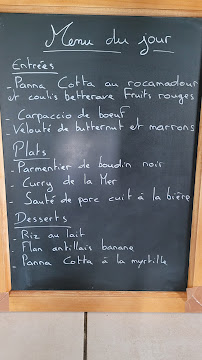 Menu du jour
Entrées
- Panna Cotta au rocamadour
et coulis betterave fruits rouges
- Carpaccio de boeuf
- Velouté de butternut et marrons
Plats
- Parmentier de boudin noir
- Curry de la Mer
- Sauté de porc cuit à la bière
Desserts
- Riz au lait
- Flan antillais banane
- Panna Cotta à la myrtille